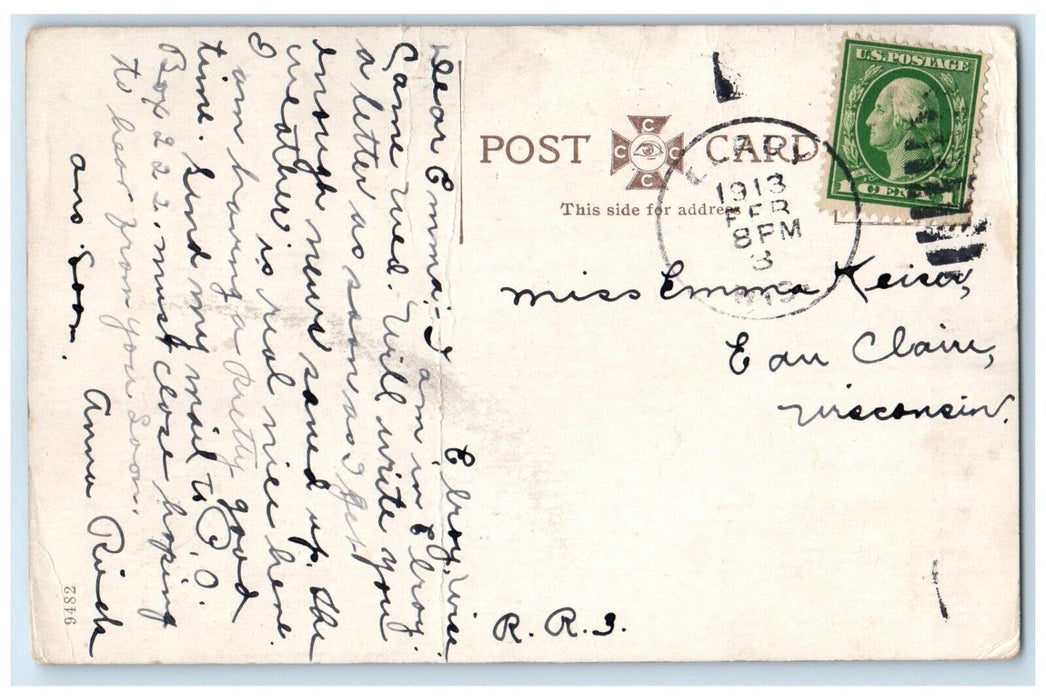 Elroy, Wisc.
Dear Emma:- I am in Elroy.
Came Wed. Will write you
a letter as soon as I get
enough news saved up. The
weather is real nice here.
I am having a pretty good
time. Send my mail to P.O.
Box 222. must close hoping
to hear from you soon.
ans. soon.
Anna
POST CARD
C C C C
This side for address
ELROY
1913
FEB
8PM
3
WIS
U.S. POSTAGE
1 CENT 1
Miss Emma Keiser,
Eau Claire,
Wisconsin.
R. R. 3.
9482